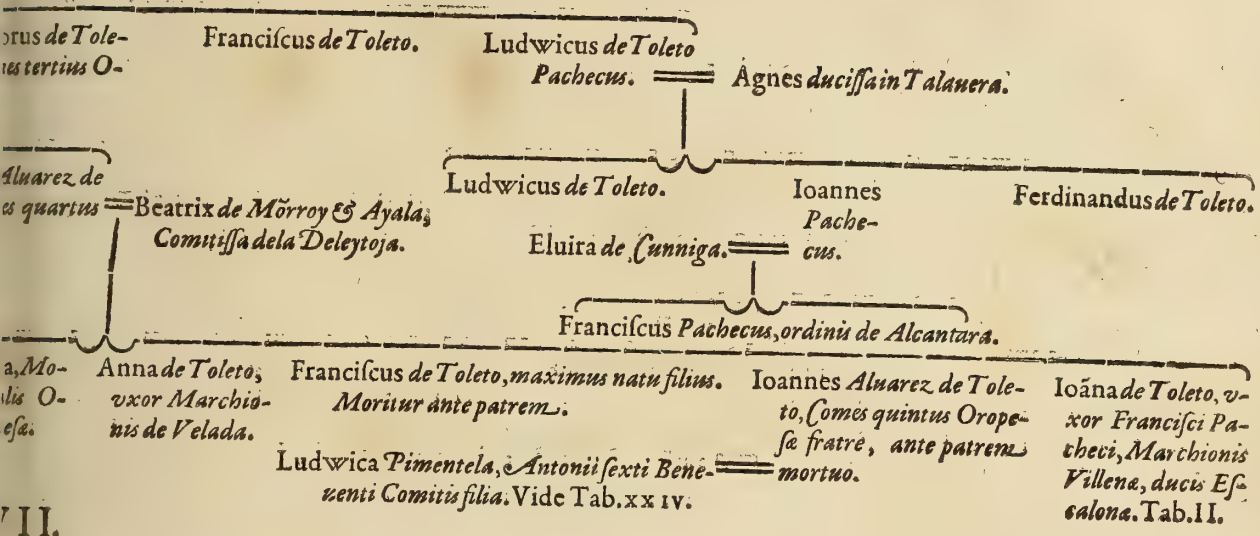 orus de Tole-
nes tertius O-
Franciſcus de Toleto.
Ludwicus de Toleto
Pachecus.
Agnes duciſſa in Talauera.
Aluarez de
es quartus
Beatrix de Mõrroy & Ayala,
Comitiſſa dela Deleytoja.
Ludwicus de Toleto.
Ioannes
Pache-
cus.
Ferdinandus de Toleto.
Eluira de Cunniga.
Franciſcus Pachecus, ordinis de Alcantara.
a, Mo-
lis O-
eſæ.
Anna de Toleto,
vxor Marchio-
nis de Velada.
Franciſcus de Toleto, maximus natu filius.
Moritur ante patrem.
Ludwica Pimentela, Antonii ſexti Bene-
uenti Comitis filia. Vide Tab. xxiv.
Ioannes Aluarez de Tole-
to, Comes quintus Orope-
ſæ fratre, ante patrem
mortuo.
Ioãna de Toleto, v-
xor Franciſci Pa-
checi, Marchionis
Villenæ, ducis Eſ-
calonæ. Tab. II.
VII.